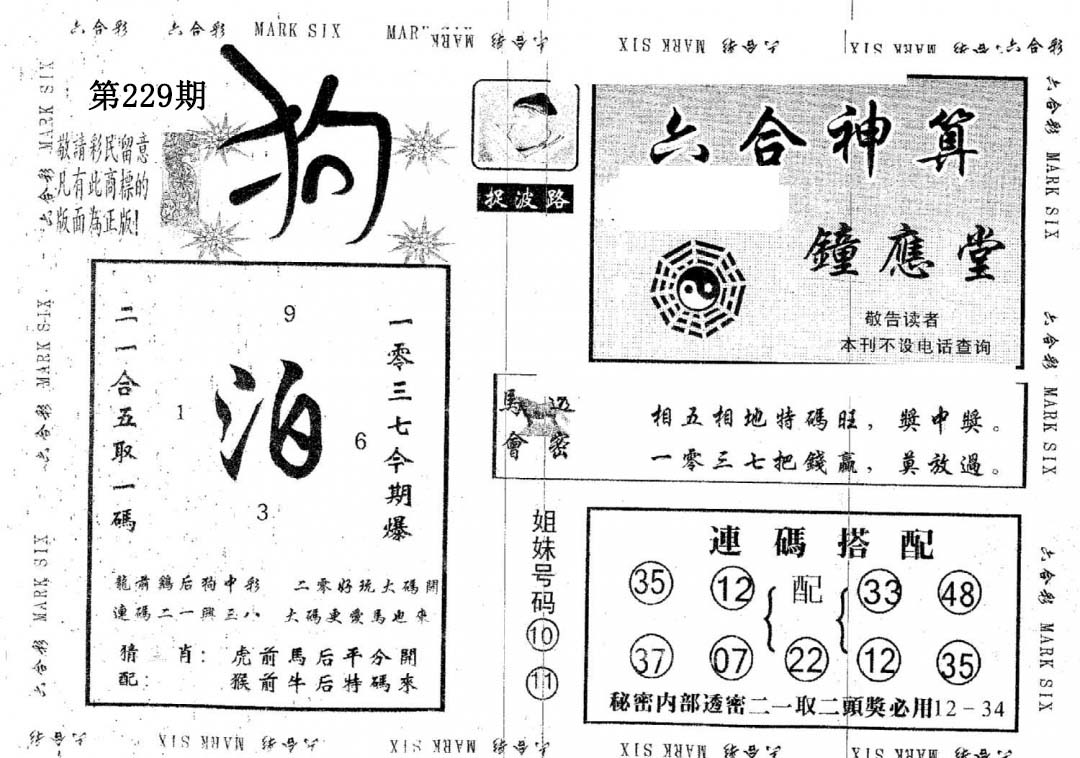 六合彩 六合彩 MARK SIX
第229期
狗
敬請彩民留意
凡有此商標的
版面為正版!
捉波路
六合神算
鐘應堂
敬告读者
本刊不设电话查询
二一合五取一碼
9
1
泊
6
3
一零三七今期爆
龍前鷄后狗中彩 二零好玩大碼開
連碼二一興三八 大碼更愛馬也來
猜三肖: 虎前馬后平分開
配: 猴前牛后特碼來
馬會
透密
相五相地特碼旺,獎中獎。
一零三七把錢贏,莫放過。
姐妹号码
10
11
連碼搭配
35 12 配 33 48
37 07 22 12 35
秘密内部透密二一取二頭獎必用12-34
六合彩 MARK SIX
六合彩 MARK SIX
六合彩 MARK SIX